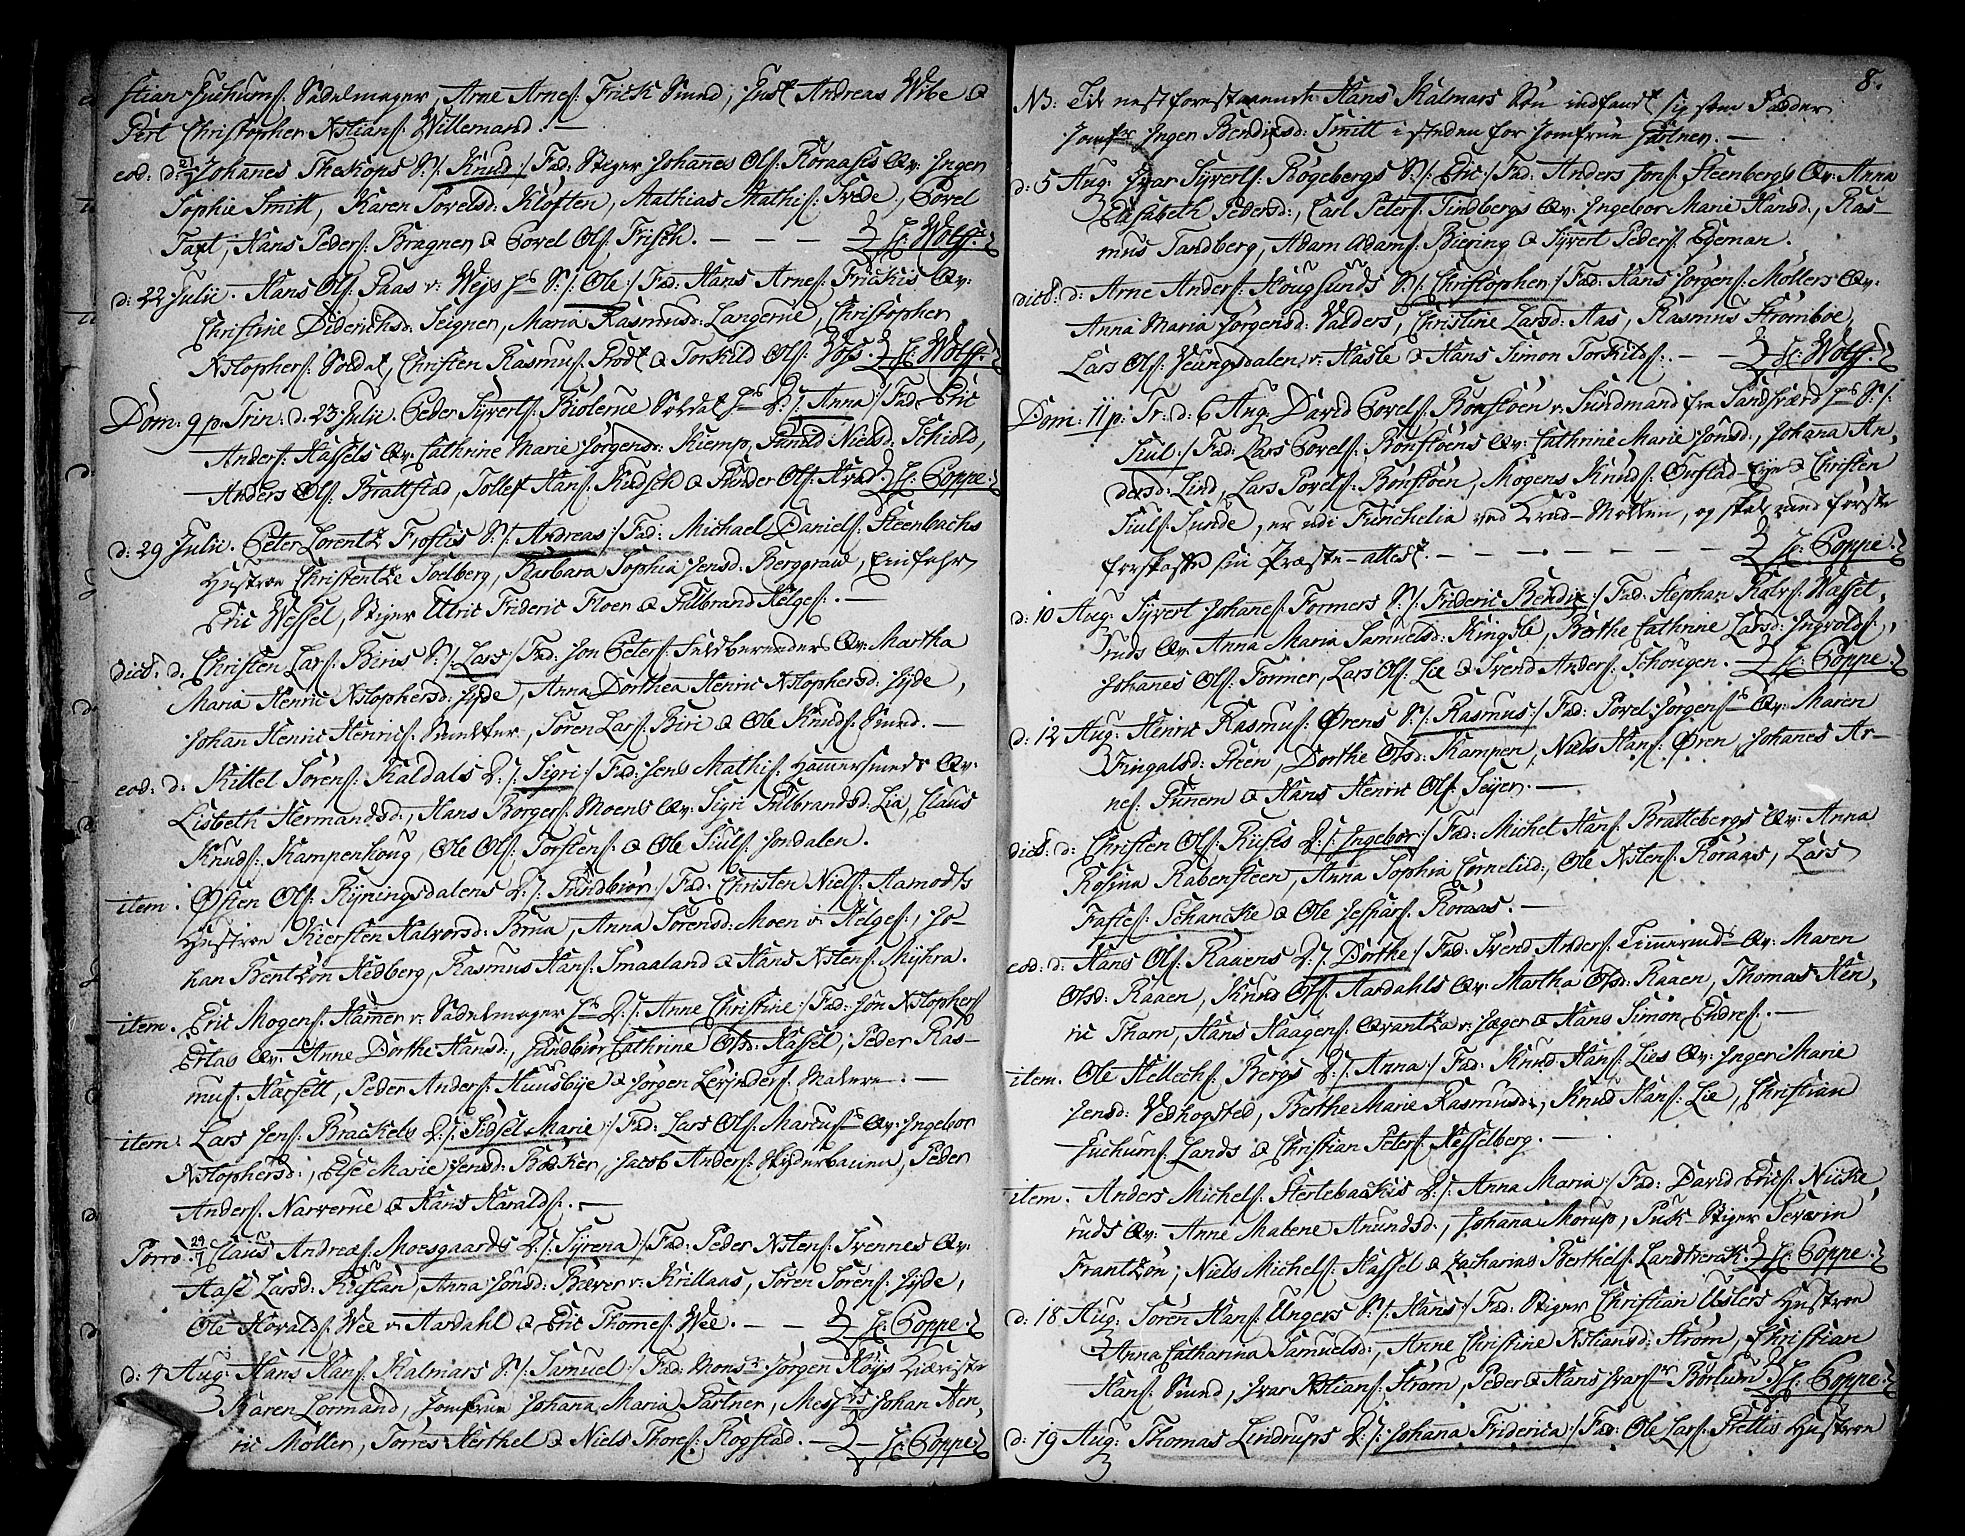 stian Juchums: Sadelmager, Arne Arnes: Frick Smed, Just Andreas Wibe &
Pert Christopher Nstians: Willemand. —
eod: d: 21/7 Johannes Theskops S: /: Knud :/ Fad: Stiger Johanes Ols: Roraases Qv: Inger
Sophie Smitt, Karen Povelsd: Kloften, Mathias Mathis: Svede, Povel
Taxt, Hans Peders: Bragner & Povel Ols: Frisch. — — — H: Wolff.
d: 22 Julii. Hans Ols: Paas v: Wejs S: /: Ole :/ Fad: Hans Arnes: Frickis Qv:
Christine Diderichsd: Seigner, Maria Rasmusd: Langerue, Christopher
Nstophers: Soldat, Christen Rasmus: Rodt & Torkild Ols: Voss. H: Wolff.
Dom: 9 p: Trin: d: 23 Julii. Peder Syverts: Biolerue Soldat D: /: Anna :/ Fad: Eric
Anders: Hassels Qv: Cathrine Marie Jørgensd: Kiemp, Gunild Nielsd: Schiold,
Anders Ols: Brattstad, Tollef Hans: Kudsch & Gunder Ols: Hvad. H: Poppe.
d: 29 Julii. Peter Lorentz Frostis S: /: Andreas :/ Fad: Michael Daniels: Steenbachs
Hustrue Christentze Soelberg, Barbara Sophia Jensd: Berggraw, Einfahr
Eric Wessel, Stiger Ulric Frideric Floer & Gulbrand Helges: —
dict: d: Christen Lars: Biris S: /: Lars :/ Fad: Jon Peters: Qv: Martha
Maria Henric Nstophersd: Hyde, Anna Dorthea Henric Nstophersd: Hyde,
Johan Henric Henrics: , Søren Lars: Biri & Ole Knuds: Smed. —
eod: d: Kittel Sørens: Kaldals D: /: Sigri :/ Fad: Jens Mathis: Hammersmeds Qv:
Lisbeth Hermandsd:, Hans Borgers: Moens Qv: Sigri Gulbrandsd: Lia, Claus
Knuds: Kampenhoug, Ole Ols: Torstens: & Ole Juls: Jondalen.
item. Østen Ols: Ryningsdalens D: /: Gundbiør :/ Fad: Christen Niels: Aamodts
Hustrue Kiersten Halvorsd: Brua, Anna Sørensd: Moen v: Helges:, Jo-
han Bentzon Hedberg, Rasmus Hans: Smaaland & Hans Nstens: Myhra.
item. Eric Mogens: Hamer v: Sadelmager D: /: Anne Christine :/ Fad: Jon Nstophers:
Ertas Qv: Anne Dorthe Hansd:, Gundbiør Cathrine Olsd: Hassel, Peder Ras-
mus: Harsett, Peder Anders: Huusbye & Jørgen Lexnders: Malere. —
item: Lars Jens: Brackels D: /: Sidsel Marie :/ Fad: Lars Ols: Marcus: Qv: Ingebor
Nstophersd:, Else Marie Jensd: Bøcker, Jacob Anders: , Peder
Anders: Narverue & Hans Haralds: —
Porro: 29/7 Claus Andreæs: Moesgaards D: /: Syrena :/ Fad: Peder Nstens: Svennes Qv:
Aase Larsd: , Anna Jonsd: Bæver v: Krillaas, Søren Sørens: Hyde,
Ole Horalds: Wee v: Aardahl & Eric Thomes: Wee. — — H: Poppe.
d: 4 Aug: Hans Hans: Kalmars S: /: Samuel :/ Fad: Monsr Jørgen Høys
Karen Lormand, Jomfrue Johana Maria Gartner, Mesr Johan Hen-
ric Møller, Torres Herthel & Niels Thores: Rogstad. — H: Poppe.
8.
NB: Til nestforestaaende Hans Kalmars Søn indfandt sig som Fadder
Jomfr Inger Bendixd: Smitt i steden for Jomfrue Gartner. —
d: 5 Aug: Ivar Syverts: Rogebergs S: /: Eric :/ Fad: Anders Jons: Steenbergs Qv: Anna
Elisabeth Pedersd:, Carl Peters: Tindbergs Qv: Ingebor Marie Hansd:, Ras-
mus Tandberg, Adam Adams: Biering & Syvert Peders: Egeman.
dict: d: Arne Anders: Hougsunds S: /: Christopher :/ Fad: Hans Jørgens: Møllers Qv:
Anna Maria Jørgensd: Valders, Christine Larsd: Aas, Rasmus Stromboe,
Lars Ols: Veungsdalen v: Hasle & Hans Simon Torkilds: — — H: Wolff.
Dom: 11 p: Tr: d: 6 Aug: David Povels: Bonstøen v: Sundmand fra Sandsværd S: /:
Juul :/ Fad: Lars Povels: Bonstøens Qv: Cathrine Marie Jonsd:, Johana An-
dersd: Lind, Lars Povels: Bonstøen, Mogens Knuds: Oustad-Eye & Christen
Juuls: Sunde, er udi Funchelia ved Krud-Møllen, og skal med første
forskaffe sin Præste-attest. — — — — H: Poppe.
d: 10 Aug: Syvert Johanes: Formers S: /: Frideric Bendix :/ Fad: Stephan Halvs: Hassel-
ruds Qv: Anna Maria Samuelsd: Kingsle, Berthe Cathrine Larsd: Ingvolds:,
Johanes Ols: Former, Lars Ols: Lie & Svend Anders: Schougen. — H: Poppe.
d: 12 Aug: Henric Rasmus: Ørens S: /: Rasmus :/ Fad: Povel Jørgens: Qv: Maren
Fingalsd: Steen, Dorthe Olsd: Kampen, Niels Hans: Øren, Johanes Ar-
nes: Funem & Hans Henric Ols: Seyer. —
dict: d: Christen Ols: Ruses D: /: Ingebor :/ Fad: Michel Hans: Brattebergs Qv: Anna
Rosina Rabensteen, Anna Sophia Cornelisd:, Ole Nstens: Roraas, Lars
Fastes: Schancke & Ole Jespars: Roraas. —
eod: d: Hans Ols: Raaens D: /: Dorthe :/ Fad: Svend Anders: Timermds Qv: Maren
Olsd: Raaen, Knud Ols: Aardahls Qv: Martha Olsd: Raaen, Thomas Hen-
ric Tham, Hans Haagens: Qvantza v: Jæger & Hans Simon Endres: —
item. Ole Hellechs: Bergs D: /: Anna :/ Fad: Knud Hans: Lies Qv: Inger Marie
Jensd: Vedhogsted, Berthe Marie Rasmusd:, Knud Hans: Lie, Christian
Juchums: Lands & Christian Peters: Kesselberg. —
item. Anders Michels: Sterlebackis D: /: Anna Maria :/ Fad: David Erics: Nicke-
ruds Qv: Anne Malene Amundsd:, Johana Morup, Puk-Stiger Severin
Frantzøn, Niels Michels: Hassel & Zacharias Berthels: Landtverck. H: Poppe.
d: 18 Aug: Søren Hans: Ungers S: /: Hans :/ Fad: Stiger Christian Uslers Hustrue
Anna Catharina Samuelsd:, Anne Christine Nstiansd: Strøm, Christian
Hans: Smed, Ivar Nstians: Strøm, Peder & Hans Ivars: Børlum. H: Poppe.
d: 19 Aug: Thomas Lindrups D: /: Johana Friderica :/ Fad: Ole Lars: Stettis Hustrue